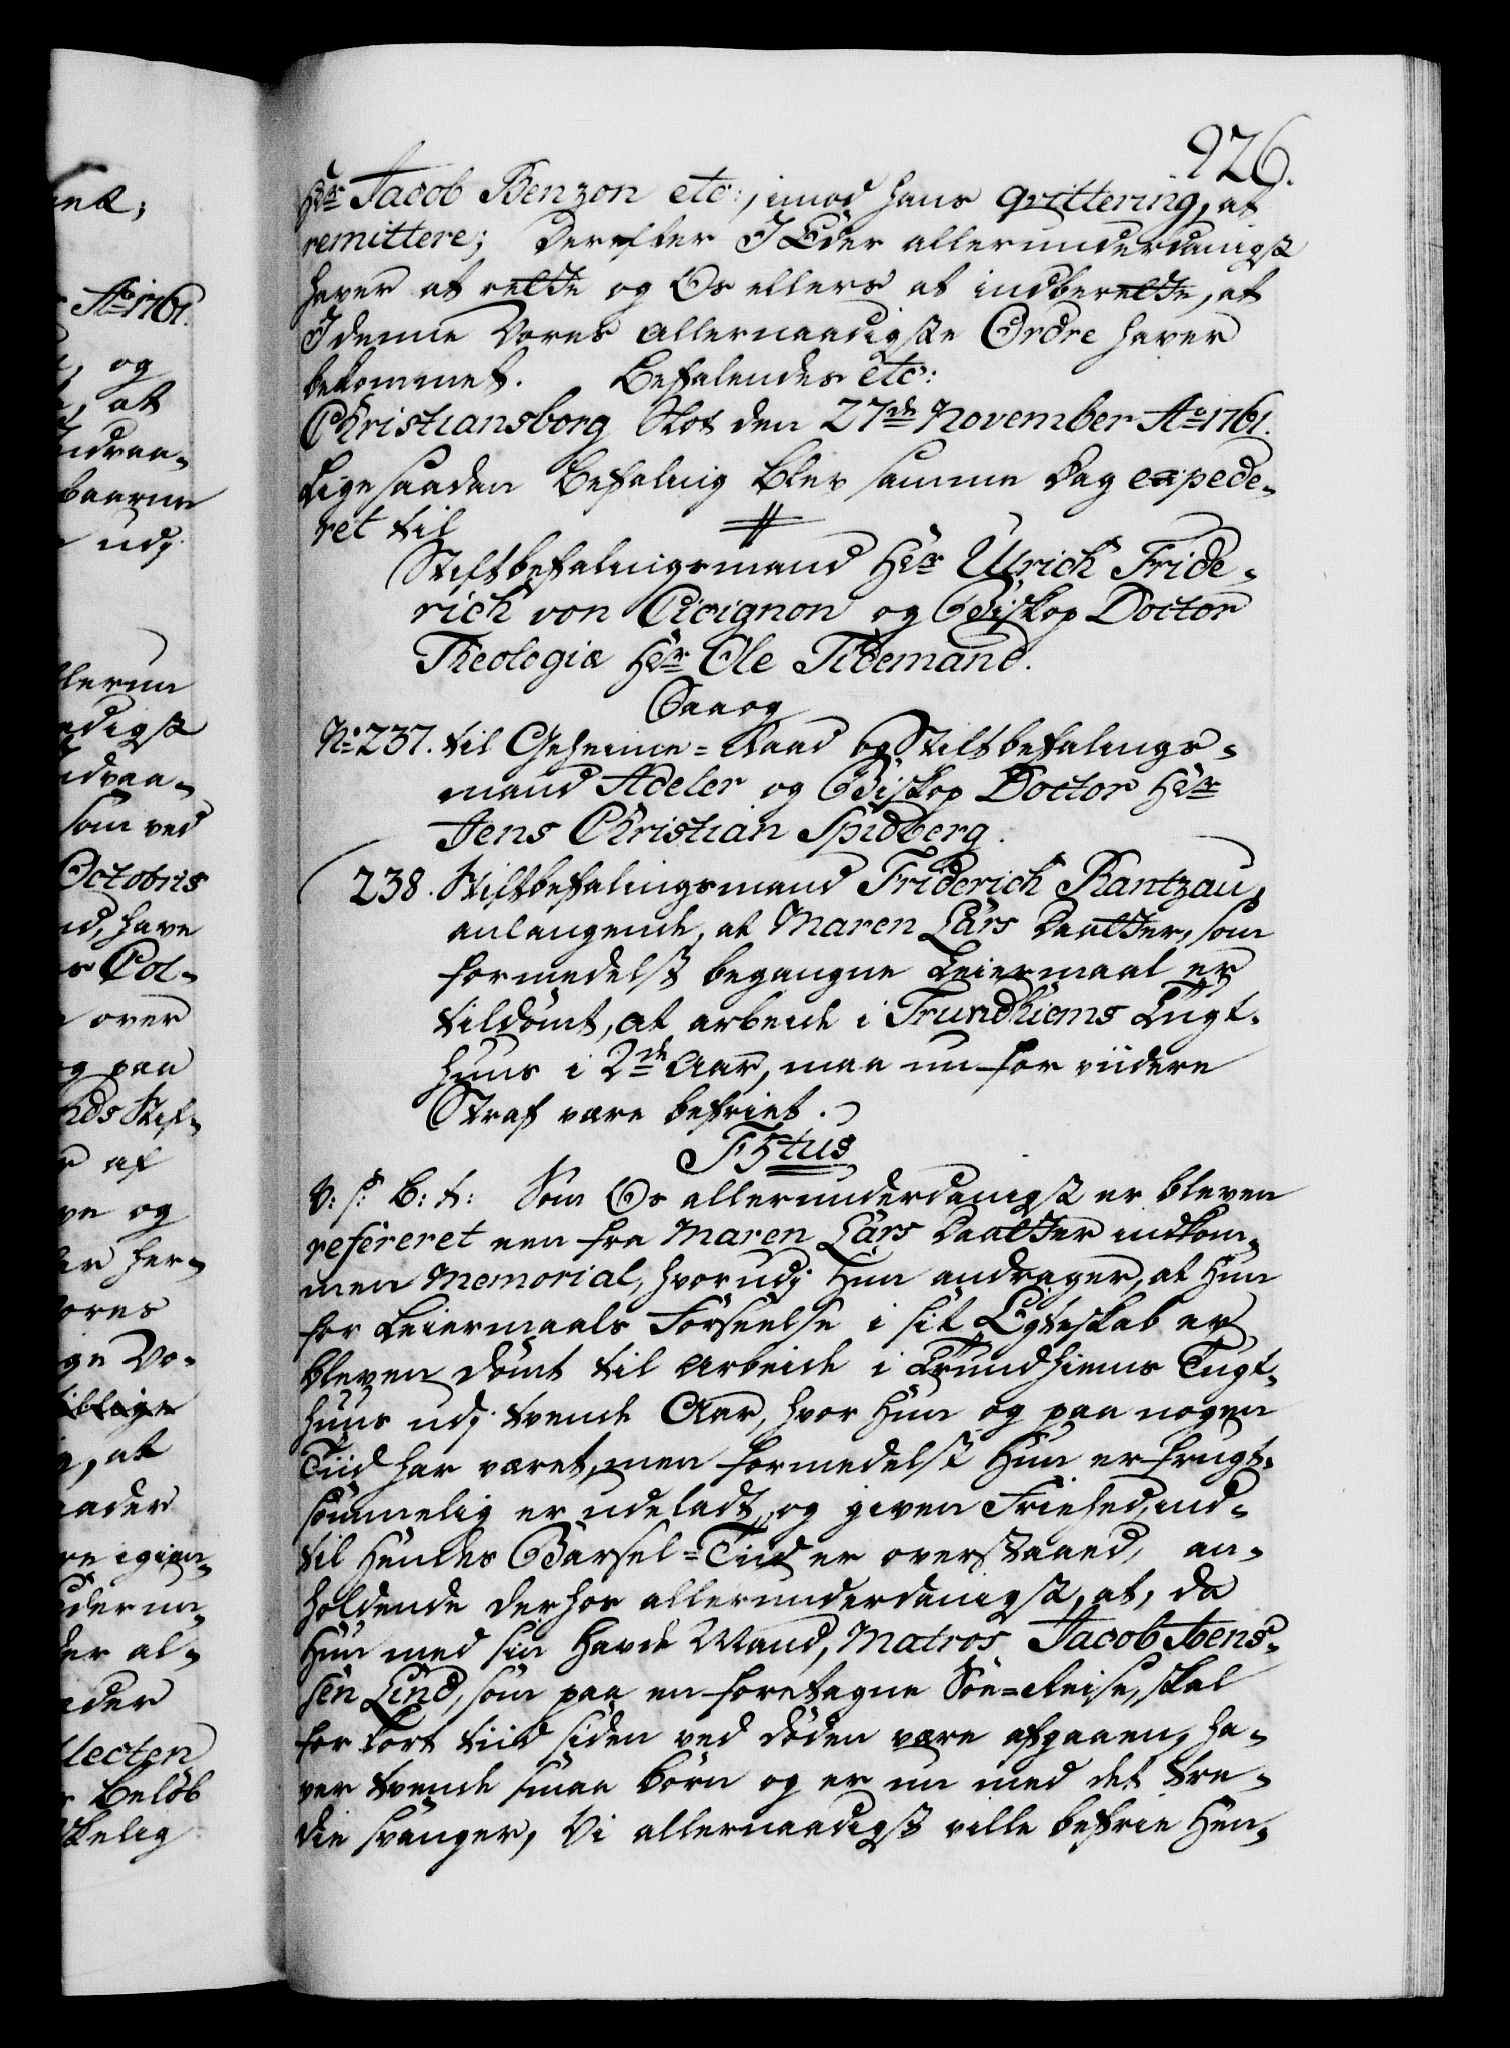 926.
Hr Jacob Benzon etc:, imod hans qvittering, at
remittere; Derefter I Eder allerunderdanigst
haver at rette og Os ellers at indberette, at
I denne Vores allernaadigste Ordre haver
bekommet. Befalendes etc:
Christiansborg Slot den 27de November Ao 1761.
Lige saadan Befaling blev samme Dag expede-
ret til
Stiftbefalingsmand Hr Ulrich Fride-
rich von Cicignon og Biskop Doctor
Theologiæ Hr Ole Tidemand.
Saaog
No 237. til Geheime-Raad og Stiftbefalings-
mand Adeler og Biskop Doctor Hr
Jens Christian Spidberg.
238. Stiftbefalingsmand Friderich Rantzau,
anlangende, at Maren Lars Daatter, som
formedelst begangne Leiermaal er
tildömt, at arbeide i Trundhiems Tugt-
huus i 2de Aar, maa nu for viidere
Straf være befriet.
F 5tus
V: S: B: t: Som Os allerunderdanigst er bleven
refereret een fra Maren Lars Daatter indkom-
men Memorial, hvorudj Hun andrager, at Hun
for Leiermaals Forseelse i sit Egteskab er
bleven dömt til Arbeide i Trundhiems Tugt-
huus udj tvende Aar, hvor Hun og paa nogen
Tiid har været, men formedelst Hun er frugt-
sommelig er udeladt, og given Friehed, ind-
til Hendes Barsel-Tiid er overstaaed, an-
holdende derhos allerunderdanigst, at, da
Hun med sin havde Mand, Matros Jacob Ibens-
sen Lind, som paa en foretagne Söe-Reise, skal
for kort tiid siden ved döden være afgaaen, ha-
ver tvende smaa börn og er nu med det tre-
die svanger, Vi allernaadigst ville befrie Hen-